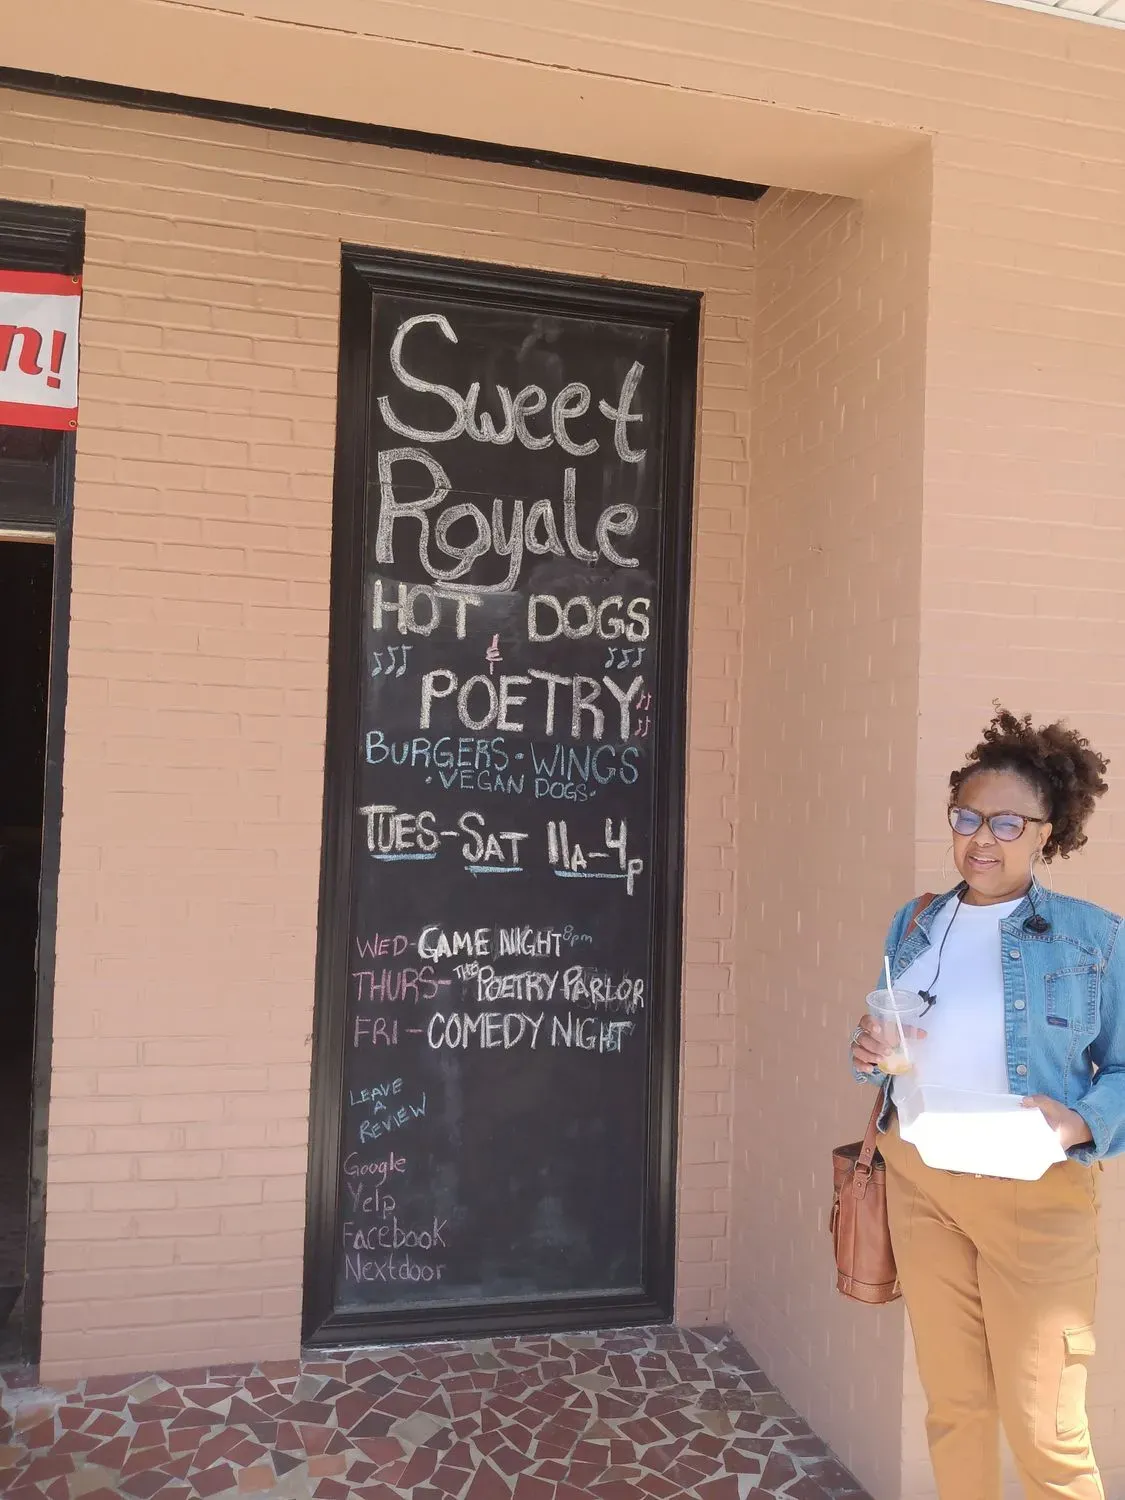 n!
Sweet
Royale
HOT DOGS
&
POETRY
BURGERS • WINGS
• VEGAN DOGS •
TUES-SAT 11A-4p
WED- GAME NIGHT 8pm
THURS- THE POETRY PARLOR
FRI - COMEDY NIGHT
LEAVE
A
REVIEW
Google
Yelp
Facebook
Nextdoor